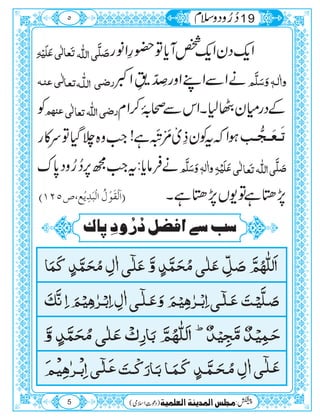 ۵ 19 دُرُود و سلام
ایک دن ایک شخص آیا تو حضورِ انور صَلَّی اللہ تَعَالٰی عَلَیْہِ
وَاٰلِہٖ وَسَلَّمَ نے اسے اپنے اور صِدِّیقِ اکبر رضی اللہ تعالٰی عنہ
کے درمیان بٹھالیا ۔ اس سے صحابۂ کرام رضی اللہ تعالٰی عنہم کو
تَعَجُّب ہوا کہ یہ کون ذِی مَرتَبہ ہے! جب وہ چلا گیا تو سرکار
صَلَّی اللہ تَعَالٰی عَلَیْہِ وَاٰلِہٖ وَسَلَّمَ نے فرمایا: یہ جب مجھ پر دُرُودِ پاک
پڑھتا ہے تو یوں پڑھتا ہے ۔ (اَلْقَوْلُ الْبَدِیْع، ص ۱۲۵)
سب سے افضل دُرُودِ پاک
اَللّٰھُمَّ صَلِّ عَلٰی مُحَمَّدٍ وَّ عَلٰۤی اٰلِ مُحَمَّدٍ کَمَا
صَلَّیْتَ عَلٰۤی اِبْرٰھِیْمَ وَعَلٰۤی اٰلِ اِبْرٰھِیْمَ اِنَّکَ
حَمِیْدٌ مَّجِیْدٌ ؕ اَللّٰھُمَّ بَارِکْ عَلٰی مُحَمَّدٍ وَّ
عَلٰۤی اٰلِ مُحَمَّدٍ کَمَا بَارَکْتَ عَلٰۤی اِبْرٰھِیْمَ
پیشکش: مجلس المدینة العلمیة (دعوتِ اسلامی) 5